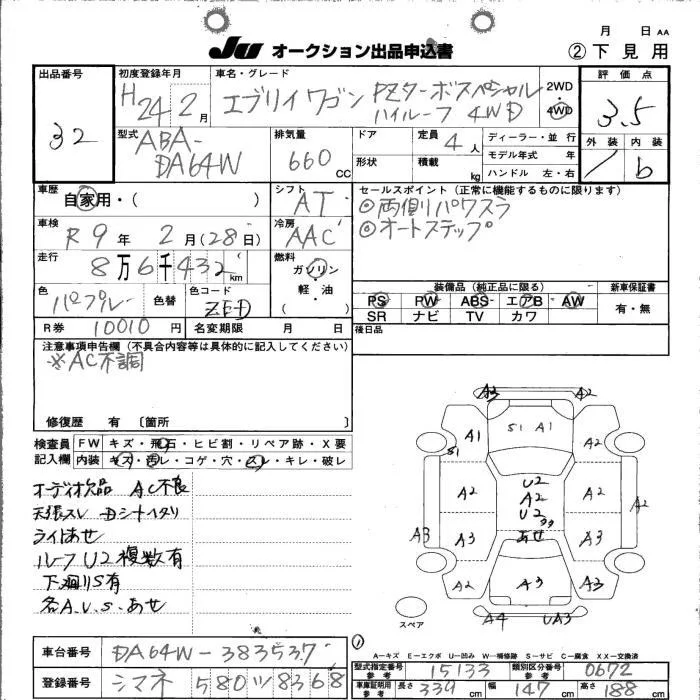 月 日 AA
JU オークション出品申込書
② 下見用
出品番号
32
初度登録年月
H24年2月
車名・グレード
エブリイワゴン PZターボスペシャル
ハイルーフ 4WD
2WD
4WD
評価点
3.5
外装 内装
b
型式
ABA-
DA64W
排気量
660 CC
ドア
形状
定員 4 人
積載 kg
ディーラー・並行
モデル年式 年
ハンドル 左・右
車歴
自家用・( )
シフト
AT
セールスポイント (正常に機能するものに限ります)
◎両側パワスラ
◎オートステップ
車検
R9年2月(28日)
冷房
AAC
走行
8万6千432km
燃料
ガソリン
・軽・油
( )
色
パープル
色替
色コード
ZED
装備品 (純正品に限る)
PS PW ABS エアB AW
SR ナビ TV カワ
新車保証書
有・無
R券 10010円
名変期限 月 日
後日品
注意事項申告欄 (不具合内容等は具体的に記入してください)
※AC不調
修復歴 有 〔箇所 〕
検査員
記入欄
FW キズ・飛石・ヒビ割・リペア跡・X要
内装 キズ・汚レ・コゲ・穴・スレ・キレ・破レ
オーディオ欠品 AC不良
天張スレ Dシートヘタリ
ライトあせ
ルーフU2複数有
下廻りS有
各A.U.S.あせ
A3 A2
A1 S1 A1 A2
S1
U2
A2 A2 A2 A2
U2
A3 A3 あせ A3
A2 A3 A3
A4 UA3
スペア
A－キズ E－エクボ U－凹み W－補修跡 S－サビ C－腐食 XX－交換済
車台番号
DA64W-383537
登録番号
シマネ 580ツ8368
①
型式指定番号
参考
15133
類別区分番号
参考
0672
車庫証明用
参考
長さ 339 cm
幅 147 cm
高さ 188 cm